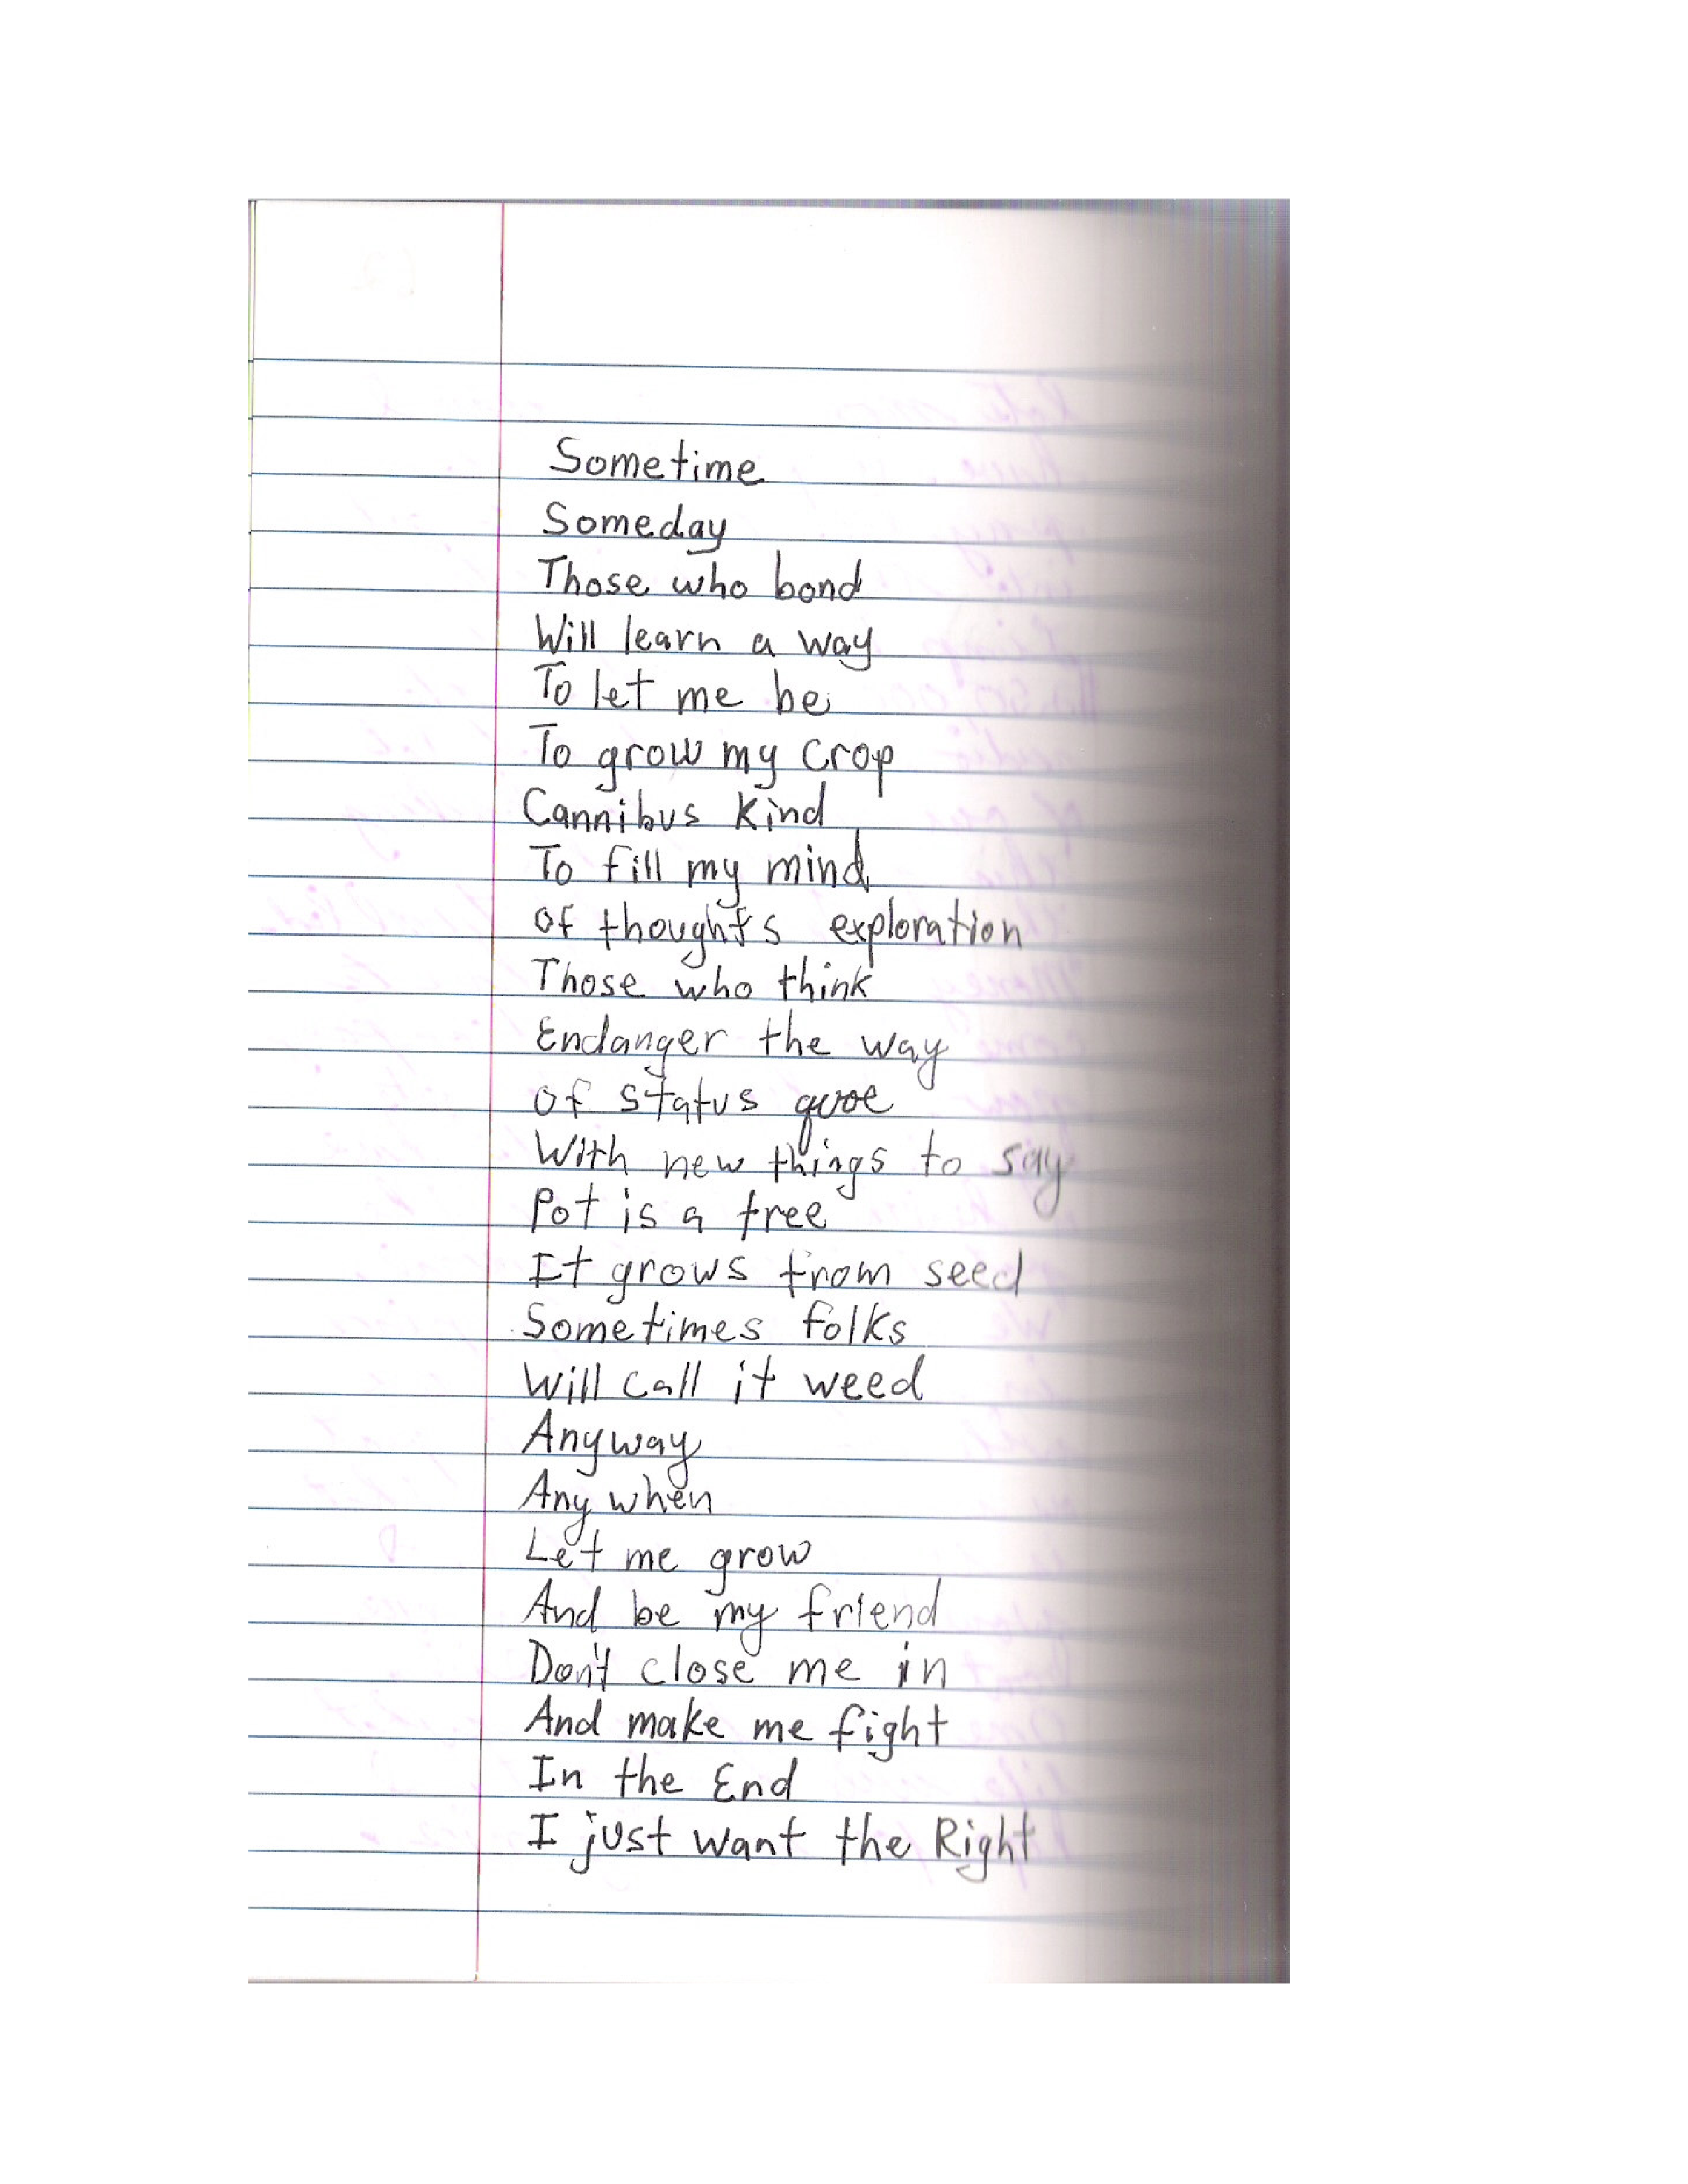 Sometime
Someday
Those who bond
Will learn a way
To let me be
To grow my crop
Cannibus Kind
To fill my mind
of thoughts exploration
Those who think
Endanger the way
of status quoe
With new things to say
Pot is a tree
It grows from seed
Sometimes folks
Will call it weed
Anyway
Any when
Let me grow
And be my friend
Don't close me in
And make me fight
In the End
I just want the Right